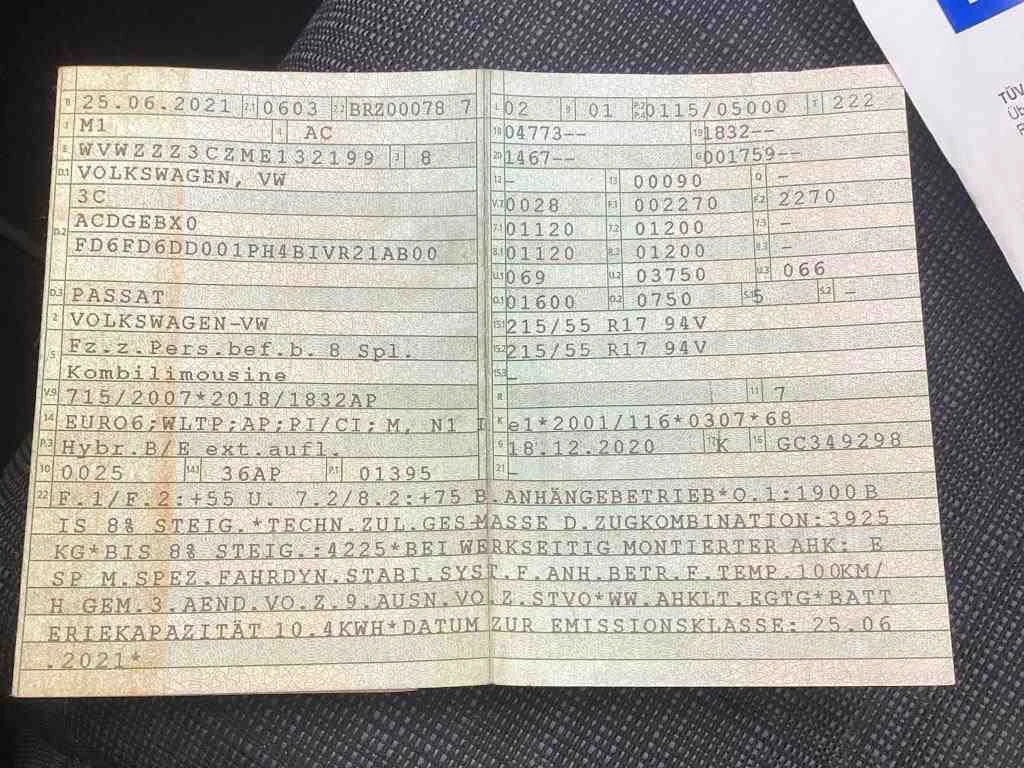 B 25.06.2021 2.1 0603 2.2 BRZ00078 7
J M1 4 AC
E WVWZZZ3CZME132199 3 8
D.1 VOLKSWAGEN, VW
3C
D.2 ACDGEBX0
FD6FD6DD001PH4BIVR21AB00
D.3 PASSAT
2 VOLKSWAGEN-VW
5 Fz.z.Pers.bef.b. 8 Spl.
Kombilimousine
V.9 715/2007*2018/1832AP
14 EURO6;WLTP;AP;PI/CI; M, N1 I
P.3 Hybr.B/E ext.aufl.
10 0025 14.1 36AP P.1 01395
L 02 9 01 P.2 P.4 0115/05000 T 222
18 04773-- 19 1832--
20 1467-- G 001759--
12 - 13 00090 Q -
V.7 0028 F.1 002270 F.2 2270
7.1 01120 7.2 01200 7.3 -
8.1 01120 8.2 01200 8.3 -
U.1 069 U.2 03750 U.3 066
O.1 01600 O.2 0750 S.1 5 S.2 -
15.1 215/55 R17 94V
15.2 215/55 R17 94V
15.3 -
R 11 7
K e1*2001/116*0307*68
6 18.12.2020 17 K 16 GC349298
21 -
22 F.1/F.2:+55 U. 7.2/8.2:+75 B.ANHÄNGEBETRIEB*O.1:1900 B
IS 8% STEIG.*TECHN.ZUL.GES-MASSE D.ZUGKOMBINATION:3925
KG*BIS 8% STEIG.:4225*BEI WERKSEITIG MONTIERTER AHK: E
SP M.SPEZ.FAHRDYN.STABI.SYST.F.ANH.BETR.F.TEMP.100KM/
H GEM.3.AEND.VO.Z.9.AUSN.VO.Z.STVO*WW.AHKLT.EGTG*BATT
ERIEKAPAZITÄT 10.4KWH*DATUM ZUR EMISSIONSKLASSE: 25.06
.2021*
TÜV